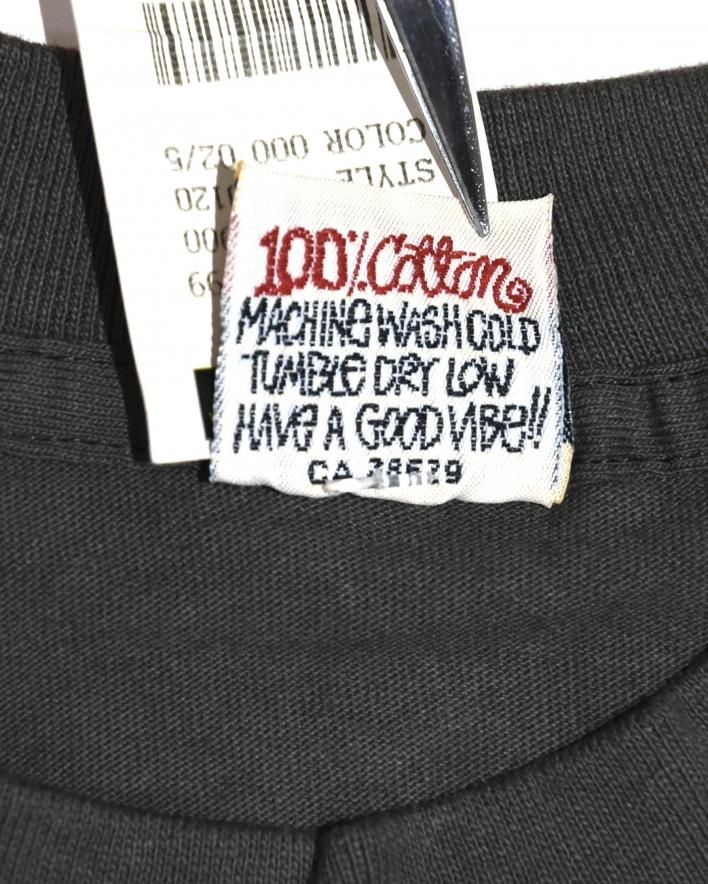 COLOR 000 02/5
STYLE
100% Cotton
MACHINE WASH COLD
TUMBLE DRY LOW
HAVE A GOOD VIBE!!
CA